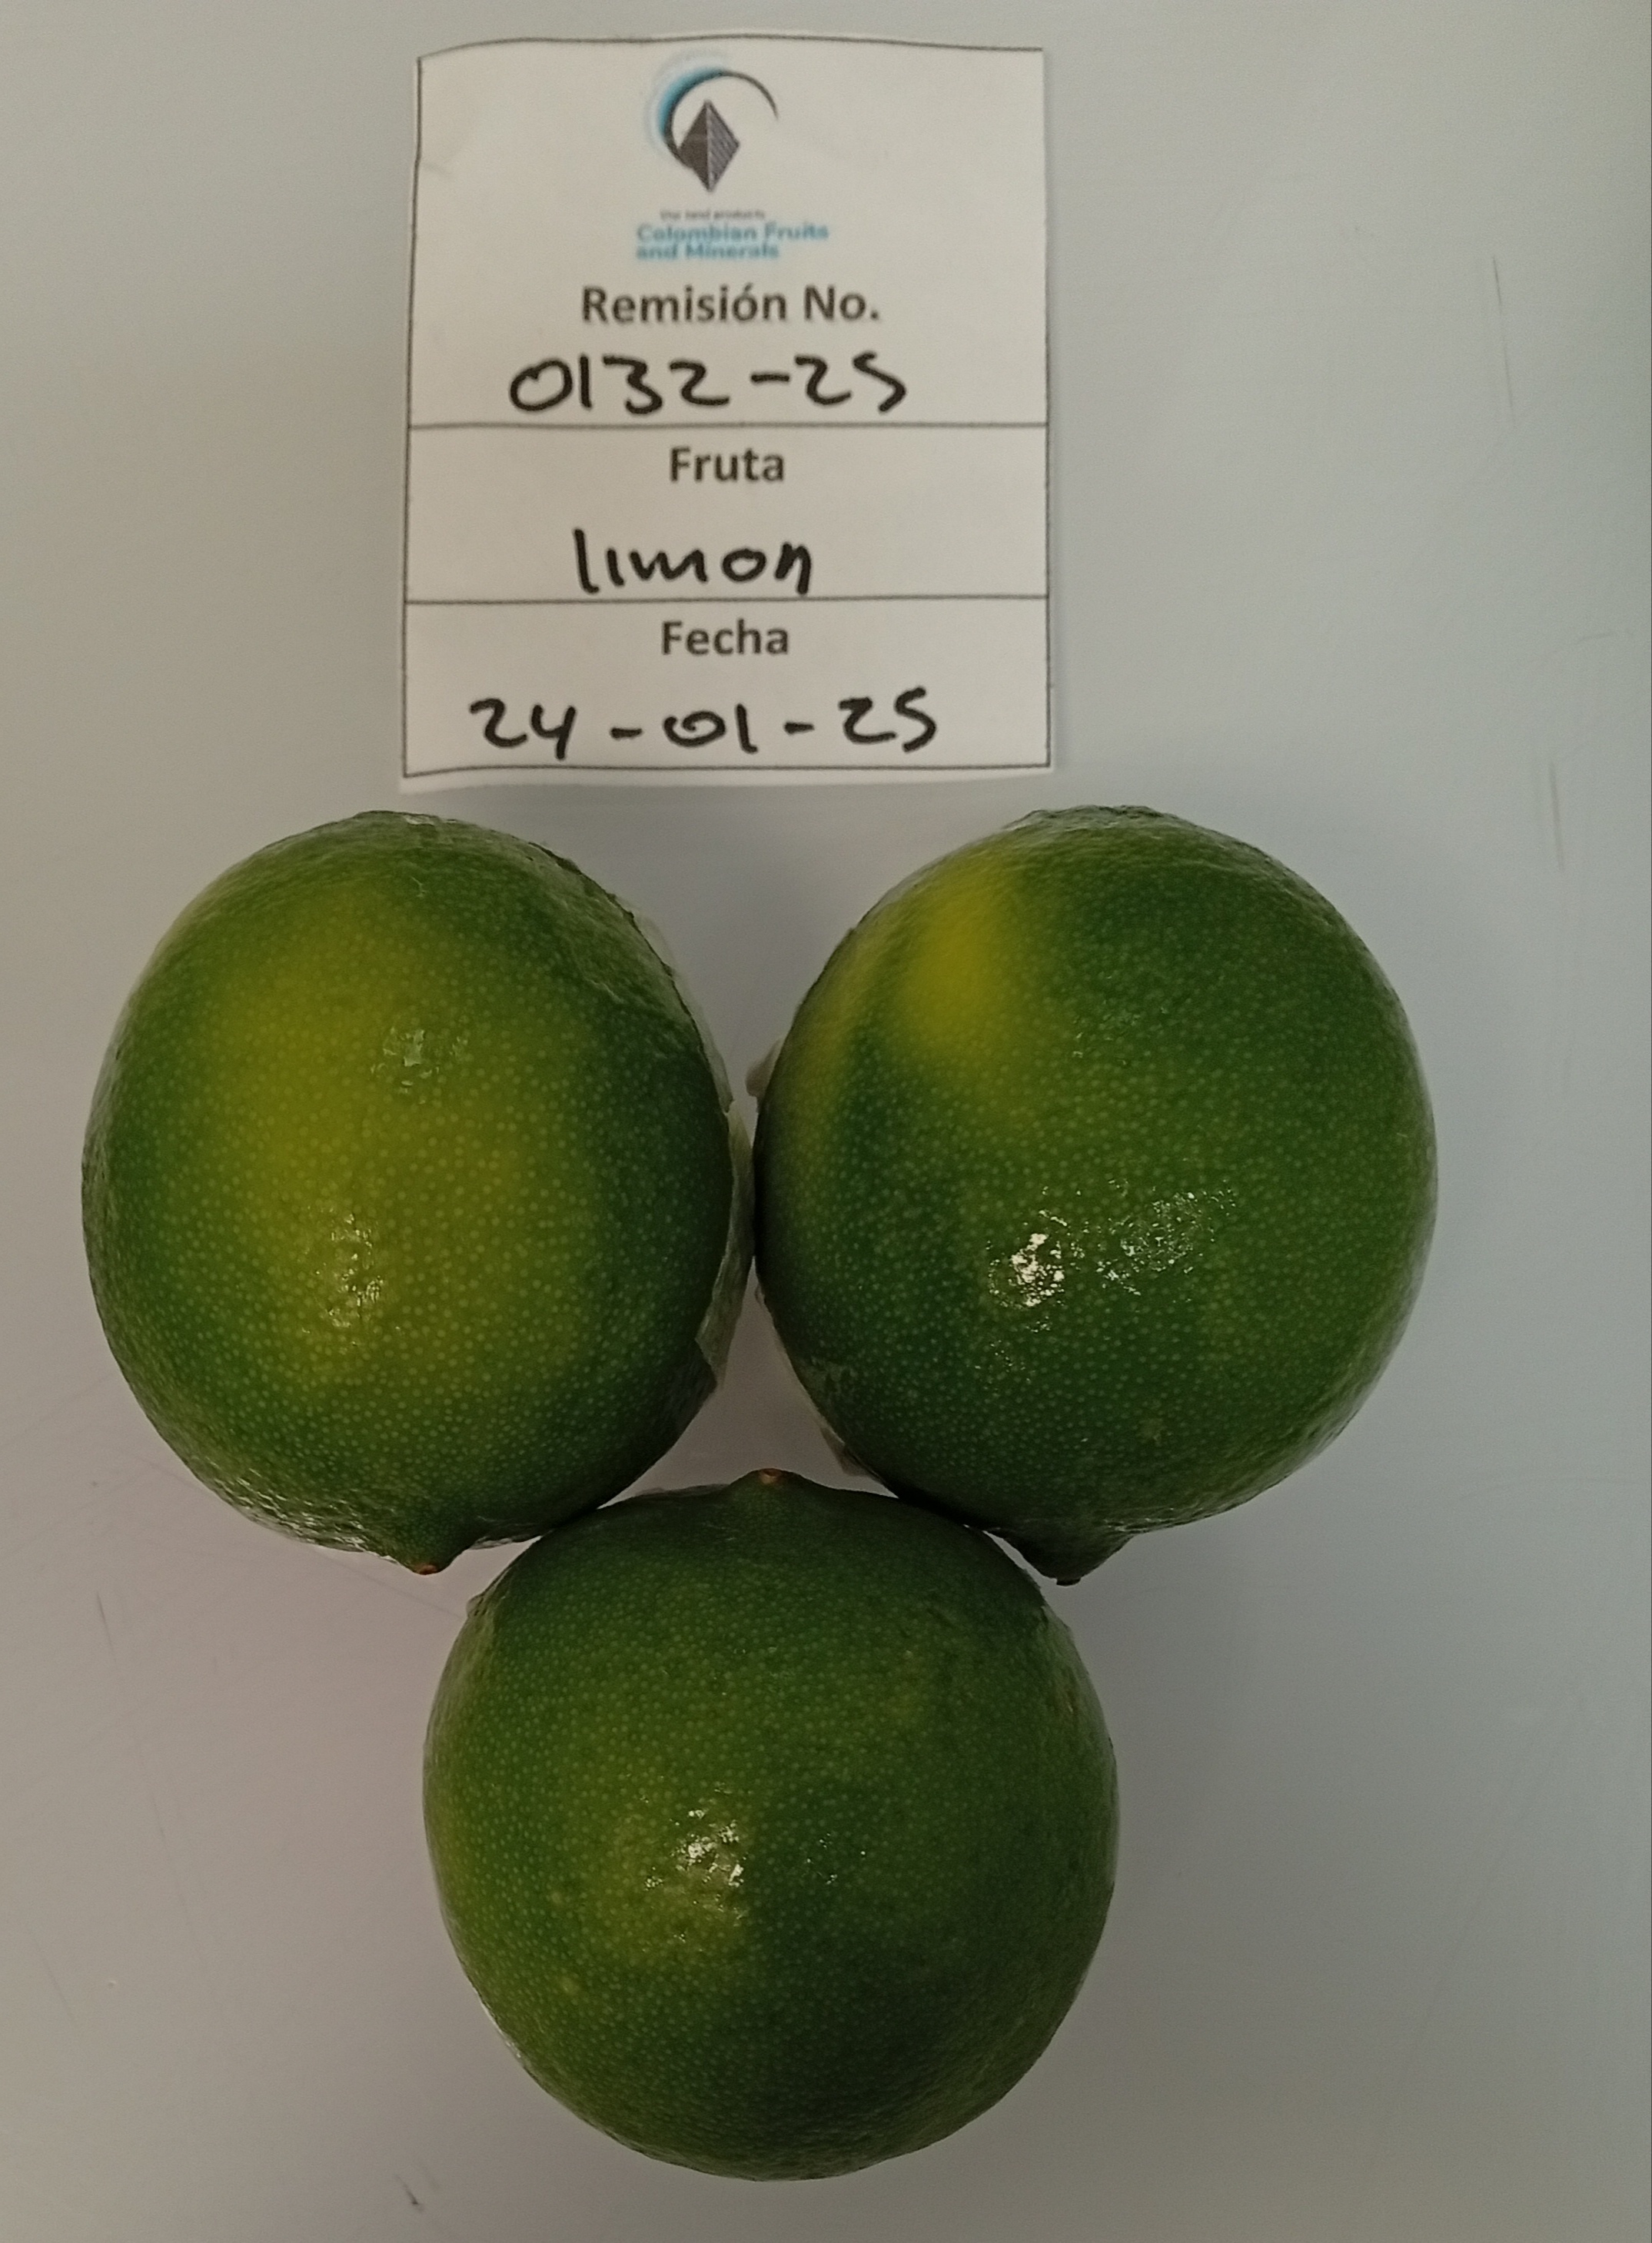 Our land products
Colombian Fruits
and Minerals
Remisión No.
0132-25
Fruta
limon
Fecha
24-01-25